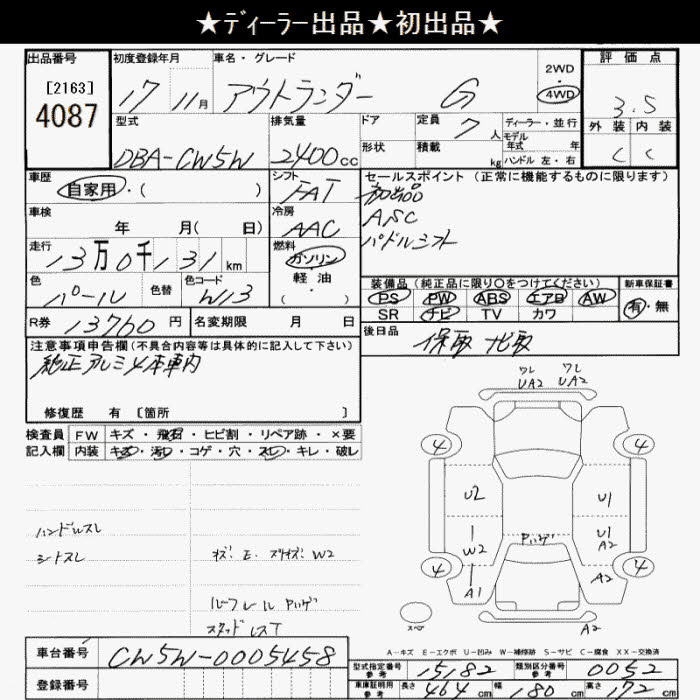 ★ディーラー出品★初出品★
出品番号
[2163]
4087
初度登録年月
17 11月
車名・グレード
アウトランダー G
2WD
・
4WD
評価点
3.5
外装 内装
C C
型式
DBA-CW5W
排気量
2400cc
ドア
形状
定員
7人
積載
kg
ディーラー・並行
モデル
年式 年
ハンドル 左・右
車歴
自家用・( )
シフト
FAT
セールスポイント(正常に機能するものに限ります)
初出品
ASC
パドルシフト
車検
年 月( 日)
冷房
AAC
走行
13万0千131km
燃料
ガソリン
軽油
・( )
色
パール
色替
色コード
W13
装備品(純正品に限り○をつけてください)
PS PW ABS エアB AW
SR ナビ TV カワ
新車保証書
有・無
R券 13760円
名変期限 月 日
後日品
保取 ナビ取
注意事項申告欄(不具合内容等は具体的に記入して下さい)
純正アルミ4本車内
修復歴 有 〔箇所 〕
検査員
記入欄
FW キズ・飛石・ヒビ割・リペア跡・×要
内装 キズ・汚れ・コゲ・穴・スレ・キレ・破レ
ハンドルスレ
シートスレ
W2
ルーフレール Pハゲ
ワレ
UA2
ワレ
UA2
4
4
U2
U1
W2
Pハゲ
U1
A2
4
A1
A2
4
スペア
A2
A-キズ E-エクボ U-凹み W-補修跡 S-サビ C-腐食 XX-交換済
車台番号 CW5W-0005458
登録番号
型式指定番号
参考
15182
類別区分番号
参考
0052
車庫証明用
参考
長さ 464cm 幅 180cm 高さ 172cm